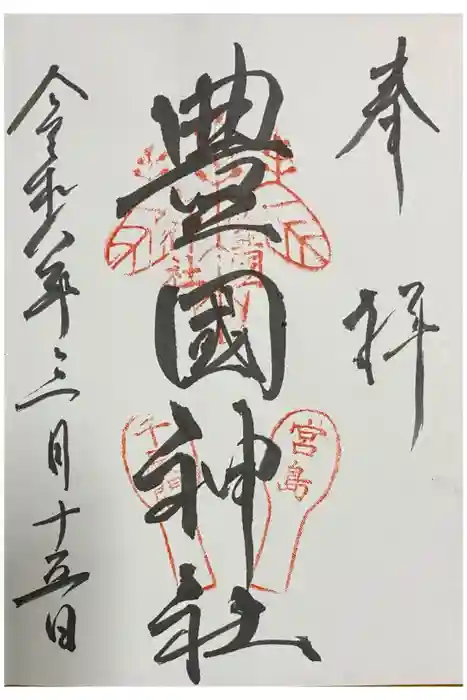 奉拝
豊國神社
宮島
千畳閣
令和八年三月十五日